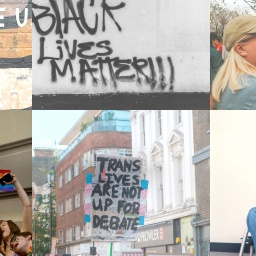 E U
BLACK
LIVES
MATTER!!!
TRANS
LIVES
ARE NOT
UP FOR
DEBATE
PROWLER